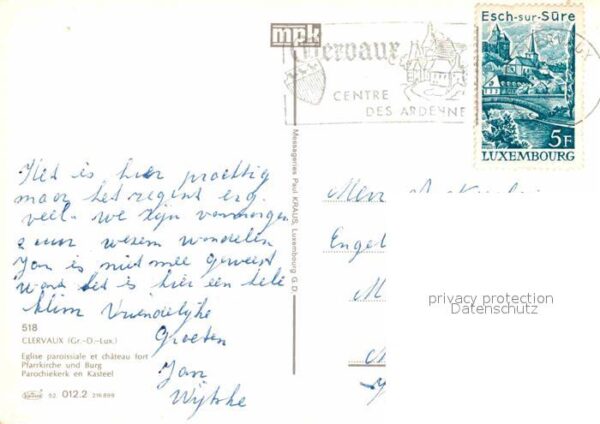 mpk
Clervaux
CENTRE
DES ARDENNE
Esch-sur-Sûre
5F
LUXEMBOURG
Het is hier prachtig
maar het regent erg
veel. we zijn vanmorgen
2 uur wezen wandelen
Jan is niet mee geweest
want het is hier een hele
klim Vriendelijke
Groeten
Jan
Wytske
518
CLERVAUX (Gr.-D.-Lux.)
Eglise paroissiale et château fort
Pfarrkirche und Burg
Parochiekerk en Kasteel
92 012.2 216 899
Messageries Paul KRAUS, Luxembourg G. D.
Engel
M
privacy protection
Datenschutz